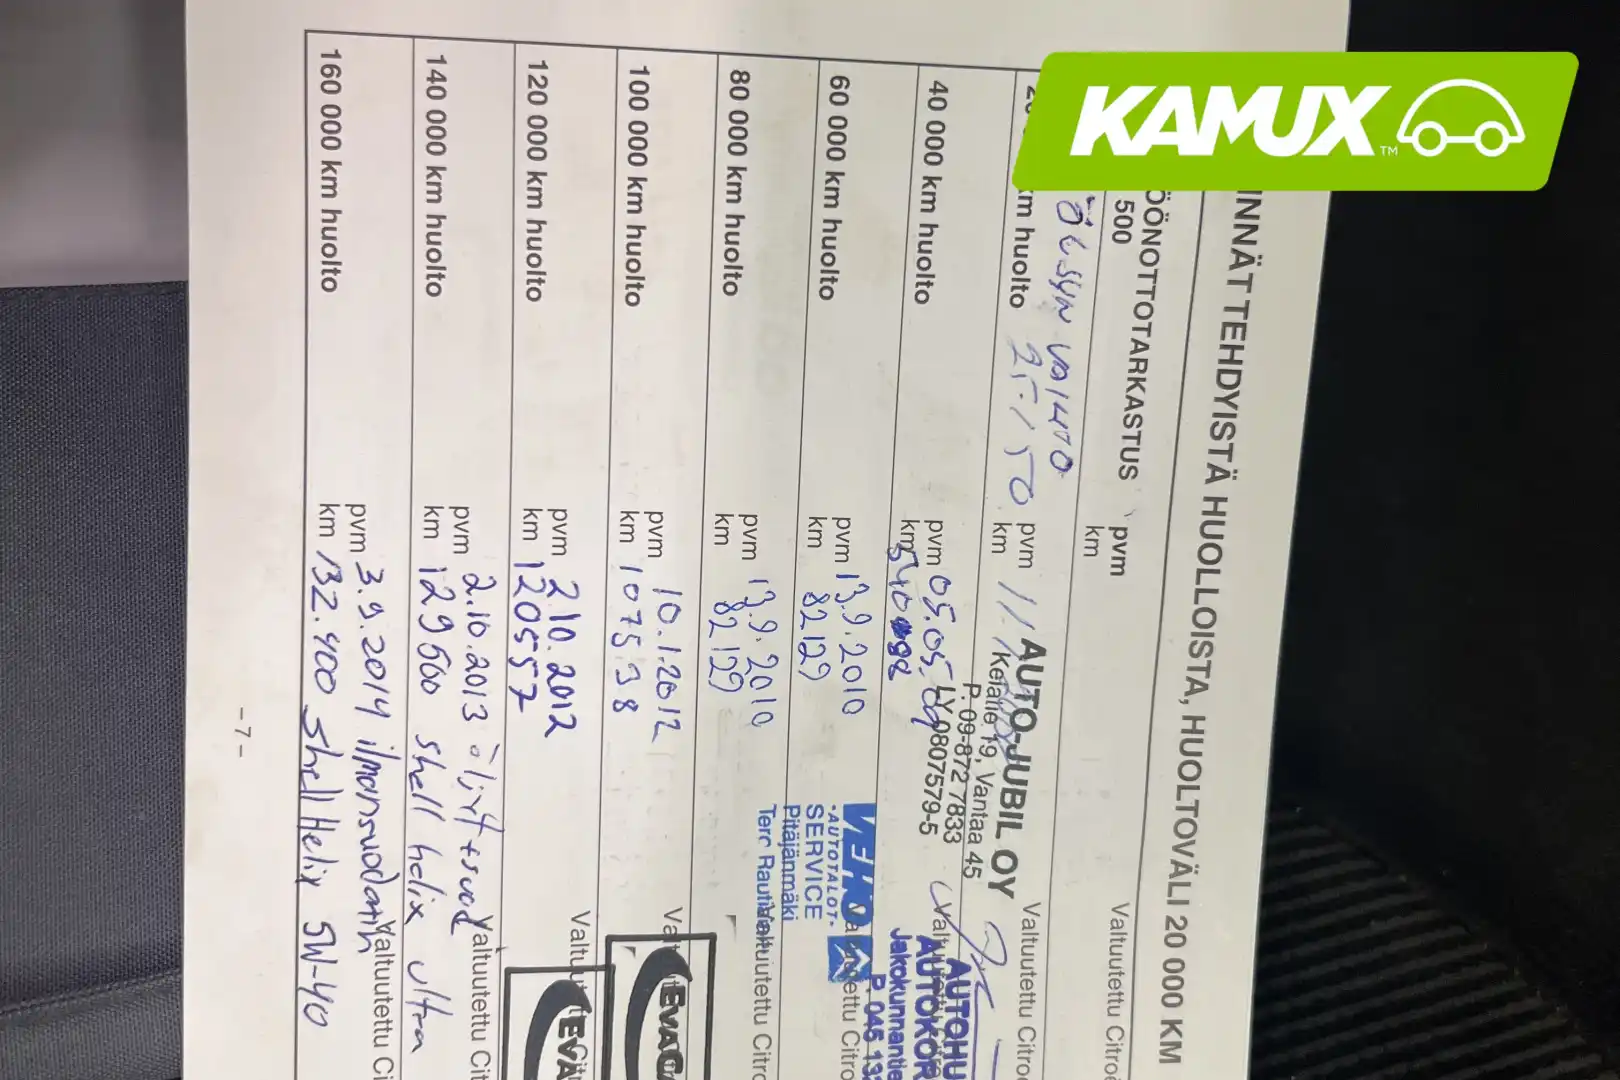 KAMUX™
INNÄT TEHDYISTÄ HUOLLOISTA, HUOLTOVÄLI 20 000 KM
ÖÖNOTTOTARKASTUS pvm Valtuutettu Citroë
500 km
Öljyn vaihto
km huolto 25.150 pvm Valtuutettu Citroë
km
AUTO-JUBIL OY
Kefalle 19, Vantaa 45
P. 09-872 7833
LY 0807579-5
40 000 km huolto pvm 05.05.09
km
AUTOHU
AUTOKOR
Jakokunnantie
P. 045 13
60 000 km huolto pvm 13.9.2010 ettu Citro
km 82129
VEHO
-AUTOTALOT-
SERVICE
Pitäjänmäki
80 000 km huolto pvm 13.9.2010 Valtuutettu Citro
km 82129
100 000 km huolto pvm 10.1.2012
km 107598
EVAC
120 000 km huolto pvm 2.10.2012
km 120557
EVA
140 000 km huolto pvm 2.10.2013 öljyt + suod Valtuutettu Cit
km 129600 shell helix ultra
160 000 km huolto pvm 3.9.2014 ilmansuodatin Valtuutettu Ci
km 132.400 Shell Helix 5W-40
- 7 -